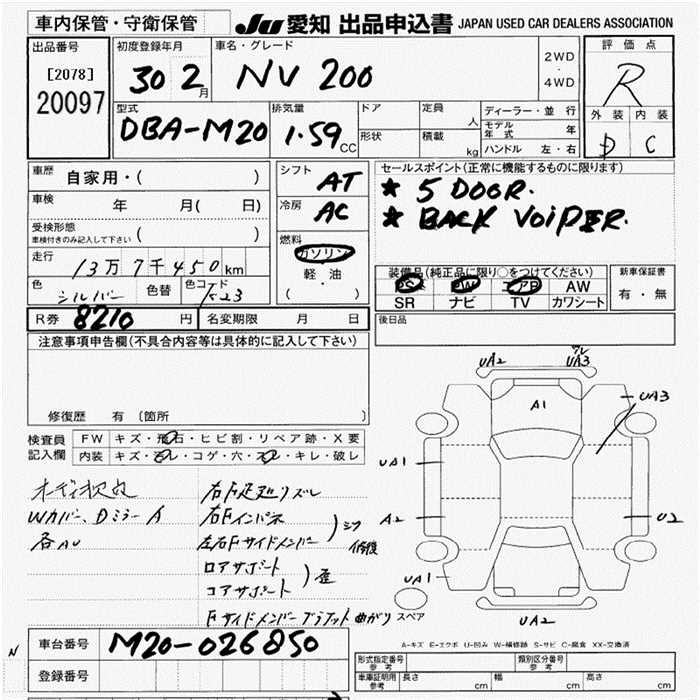 車内保管・守衛保管
JU 愛知 出品申込書 JAPAN USED CAR DEALERS ASSOCIATION
出品番号
[2078]
20097
初度登録年月
30 2月
車名・グレード
NV 200
2WD
・
4WD
評価点
R
外装 内装
D C
型式
DBA-M20
排気量
1.59 CC
ドア
形状
定員 人
積載 kg
ディーラー・並行
モデル年式 年
ハンドル 左・右
車歴 自家用・( )
車検 年 月( 日)
受検形態
車検付きのみ記入して下さい ( )
走行 13万7千450km
色 シルバー 色替 色コード K23
シフト AT
冷房 AC
燃料
ガソリン
軽・油
( ・ )
セールスポイント(正常に機能するものに限ります)
★ 5 DOOR.
★ BACK VOIPER.
装備品(純正品に限り○をつけてください)
PS PW エアB AW
SR ナビ TV カワシート
新車保証書
有・無
R券 8210 円
名変期限 月 日
後日品
注意事項申告欄(不具合内容等は具体的に記入して下さい)
修復歴 有(箇所
検査員
記入欄
FW キズ・飛石・ヒビ割・リペア跡・X要
内装 キズ・汚レ・コゲ・穴・スレ・キレ・破レ
オーディオ欠品
Wカバー、Dミラー A
各AU
右F足廻リズレ
右Fインパネ
左右Fサイドメンバー
シワ
修復
ロアサポート
コアサポート
歪
Fサイドメンバーブラケット曲がり
UA2
UA3
A1
UA3
UA1
A2
U2
UA1
スペア
UA2
A-キズ E-エクボ U-凹み W-補修跡 S-サビ C-腐食 XX-交換済
N
車台番号 M20-026850
登録番号
形式指定番号
参考
類別区分番号
参考
車庫証明用
参考
長さ cm
幅 cm
高さ cm